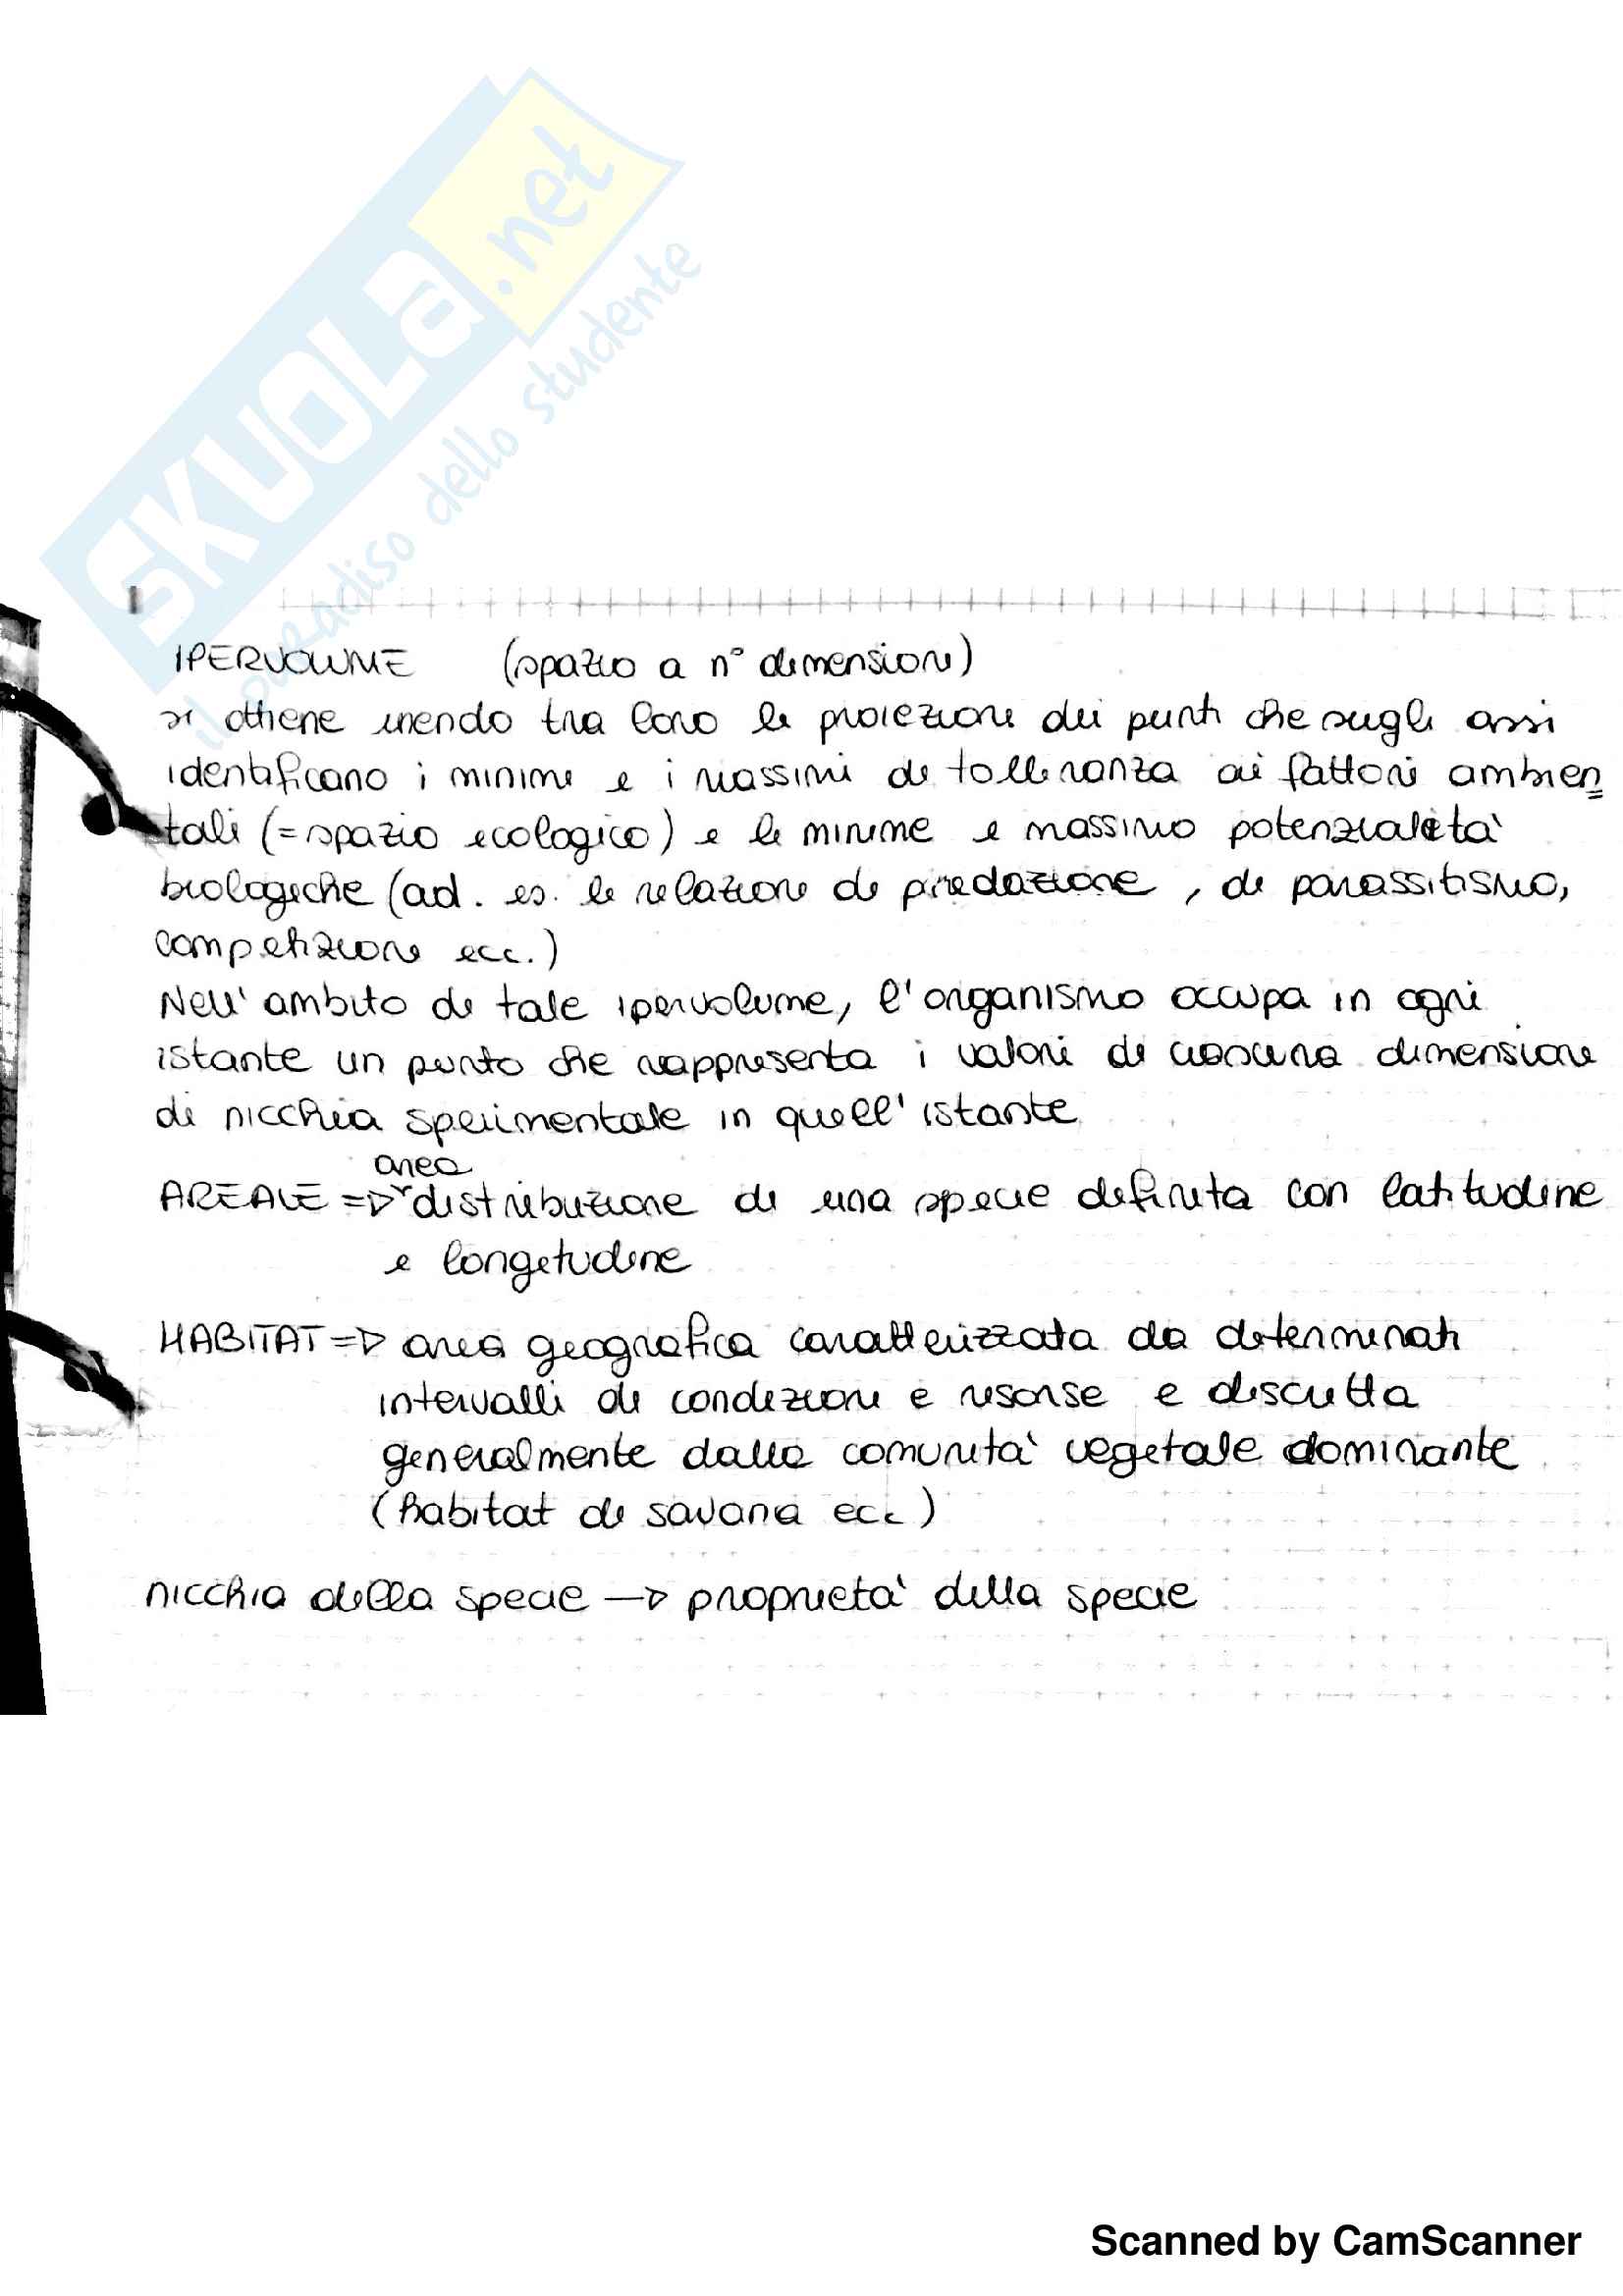 SKUOLa.net
il paradiso dello studente
IPERVOLUME (spazio a n° dimensioni)
si ottiene unendo tra loro le proiezioni dei punti che sugli assi
identificano i minimi e i massimi di tolleranza ai fattori ambien
tali (= spazio ecologico) e le minime e massimo potenzialità
biologiche (ad. es. le relazioni di predazione, di parassitismo,
competizione ecc.)
Nell' ambito di tale ipervolume, l'organismo occupa in ogni
istante un punto che rappresenta i valori di ciascuna dimensione
di nicchia sperimentale in quell' istante
area
AREALE => distribuzione di una specie definita con latitudine
e longetudine
HABITAT => area geografica caratterizzata da determinati
intervalli di condizioni e risorse e descritta
generalmente dalla comunità vegetale dominante
(habitat di savana ecc)
nicchia della specie —> proprietà della specie
Scanned by CamScanner